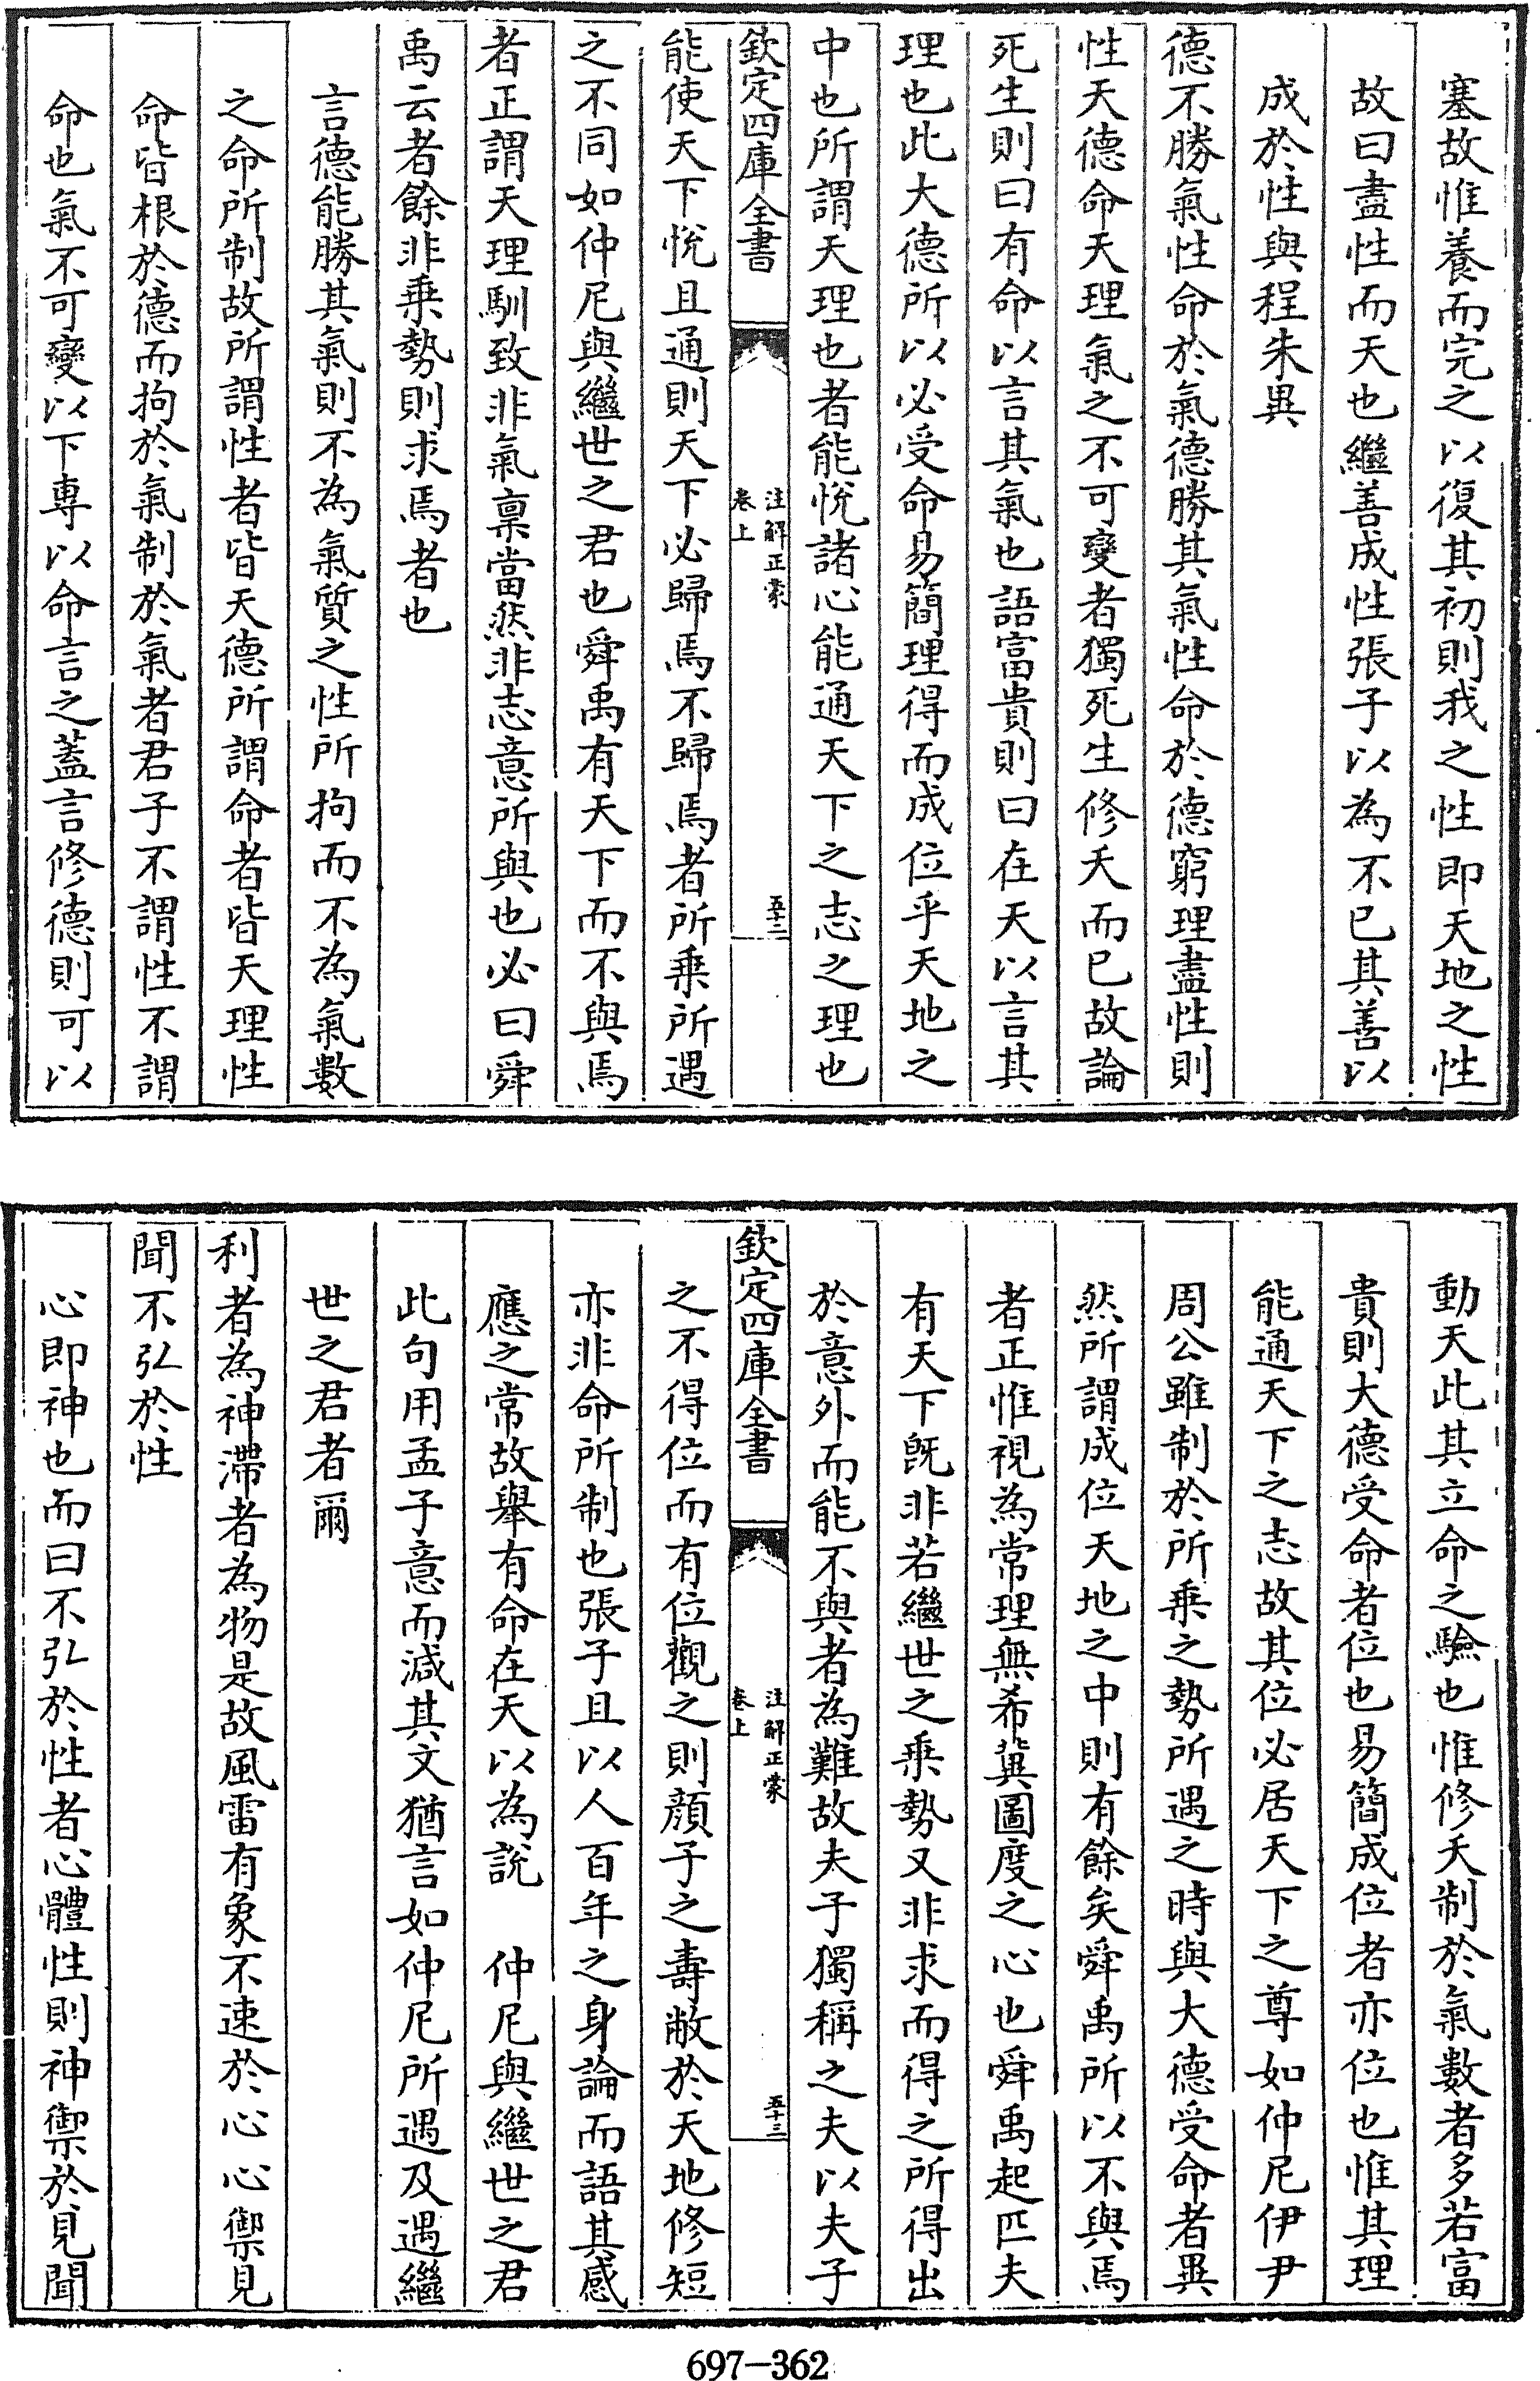 塞故惟養而完之以復其初則我之性即天地之性
故曰盡性而天也繼善成性張子以為不已其善以
成於性與程朱異
德不勝氣性命於氣德勝其氣性命於德窮理盡性則
性天德命天理氣之不可變者獨死生修夭而已故論
死生則曰有命以言其氣也語富貴則曰在天以言其
理也此大德所以必受命易簡理得而成位乎天地之
中也所謂天理也者能悅諸心能通天下之志之理也
欽定四庫全書
注解正蒙
卷上
五十二
能使天下悅且通則天下必歸焉不歸焉者所乗所遇
之不同如仲尼與繼世之君也舜禹有天下而不與焉
者正謂天理馴致非氣稟當然非志意所與也必曰舜
禹云者餘非乗勢則求焉者也
言德能勝其氣則不為氣質之性所拘而不為氣數
之命所制故所謂性者皆天德所謂命者皆天理性
命皆根於德而拘於氣制於氣者君子不謂性不謂
命也氣不可變以下專以命言之蓋言修德則可以
動天此其立命之驗也惟修夭制於氣數者多若富
貴則大德受命者位也易簡成位者亦位也惟其理
能通天下之志故其位必居天下之尊如仲尼伊尹
周公雖制於所乗之勢所遇之時與大德受命者異
然所謂成位天地之中則有餘矣舜禹所以不與焉
者正惟視為常理無希冀圖度之心也舜禹起匹夫
有天下旣非若繼世之乗勢又非求而得之所得出
於意外而能不與者為難故夫子獨稱之夫以夫子
欽定四庫全書
注解正蒙
卷上
五十三
之不得位而有位觀之則顔子之壽敝於天地修短
亦非命所制也張子且以人百年之身論而語其感
應之常故舉有命在天以為說　仲尼與繼世之君
此句用孟子意而減其文猶言如仲尼所遇及遇繼
世之君者爾
利者為神滯者為物是故風雷有象不速於心心禦見
聞不弘於性
心即神也而曰不弘於性者心體性則神禦於見聞
697-362